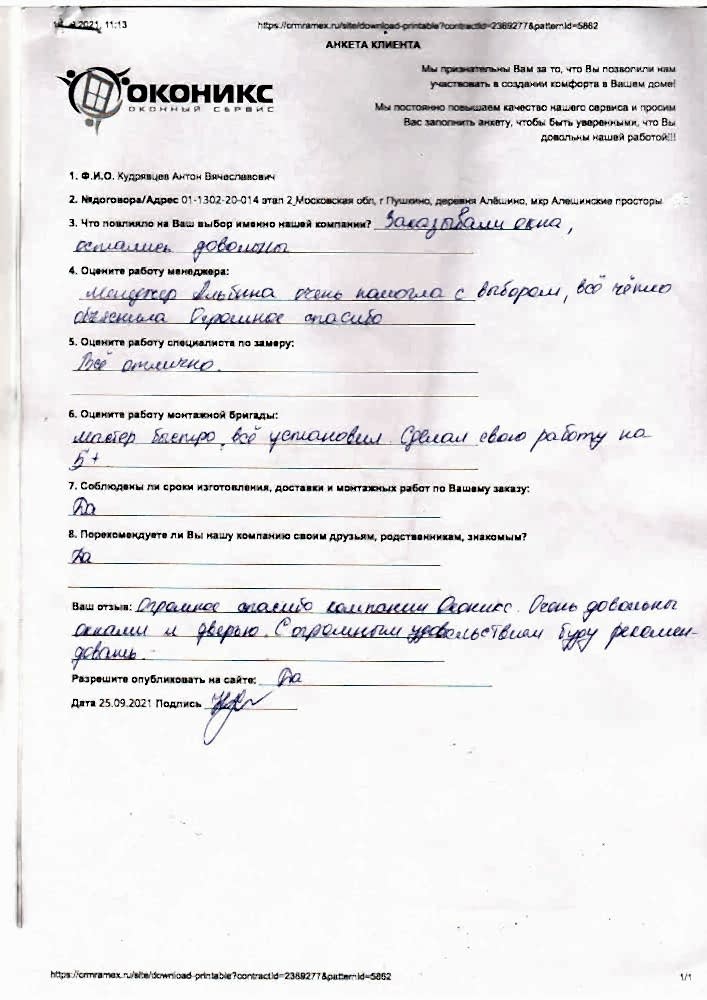 2021, 11:13
https://crmramex.ru/site/download-printable?contractId=2389277&patternId=5862
АНКЕТА КЛИЕНТА
ОКОНИКС
ОКОННЫЙ СЕРВИС
Мы признательны Вам за то, что Вы позволили нам
участвовать в создании комфорта в Вашем доме!
Мы постоянно повышаем качество нашего сервиса и просим
Вас заполнить анкету, чтобы быть уверенными, что Вы
довольны нашей работой!!!
1. Ф.И.О. Кудрявцев Антон Вячеславович
2. №договора/Адрес 01-1302-20-014 этап 2,Московская обл, г Пушкино, деревня Алёшино, мкр Алешинские просторы
3. Что повлияло на Ваш выбор именно нашей компании? Заказывали окна,
остались довольны
4. Оцените работу менеджера:
Менеджер Альбина очень помогла с выбором, всё чётко
объяснила Огромное спасибо
5. Оцените работу специалиста по замеру:
Всё отлично.
6. Оцените работу монтажной бригады:
Мастер быстро всё установил. Сделал свою работу на
5+
7. Соблюдены ли сроки изготовления, доставки и монтажных работ по Вашему заказу:
Да
8. Порекомендуете ли Вы нашу компанию своим друзьям, родственникам, знакомым?
Да
Ваш отзыв: Огромное спасибо компании Оконикс. Очень довольны
окнами и дверью. С огромным удовольствием буду рекомен-
довать.
Разрешите опубликовать на сайте: Да
Дата 25.09.2021 Подпись
https://crmramex.ru/site/download-printable?contractId=2389277&patternId=5862
1/1